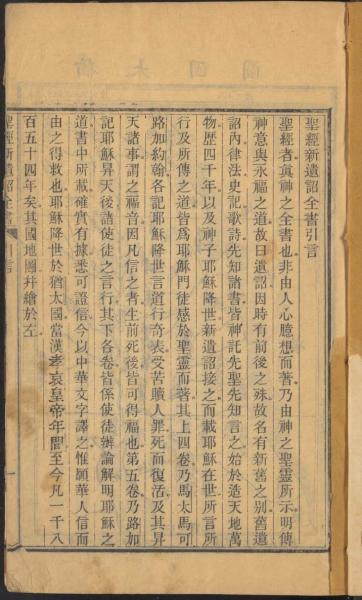 聖經新遺詔全書引言
聖經者眞神之全書也非由人心臆想而著乃由神之聖靈所示明傳
神意與永福之道故曰遺詔因時有前後之殊故名有新舊之別舊遺
詔內律法史記歌詩先知諸書皆神託先聖先知言之始於造天地萬
物歷四千年以及神子耶穌降世新遺詔接之而載耶穌在世所言所
行及所傳之道皆爲耶穌門徒感於聖靈而著其上四卷乃馬太馬可
路加約翰各記耶穌降世言道行奇表受苦贖人罪死而復活及其昇
天諸事謂之福音因凡信之者生前死後皆可得福也第五卷乃路加
記耶穌昇天後諸使徒之言行其下各卷皆係使徒辯論解明耶穌之
道書中所載確實有據悉可證信今以中華文字譯之惟願華人信而
由之得救也耶穌降世於猶太國當漢孝哀皇帝年間至今凡一千八
百五十四年矣其國地圖幷繪於左
聖經新遺詔全書 引言 一